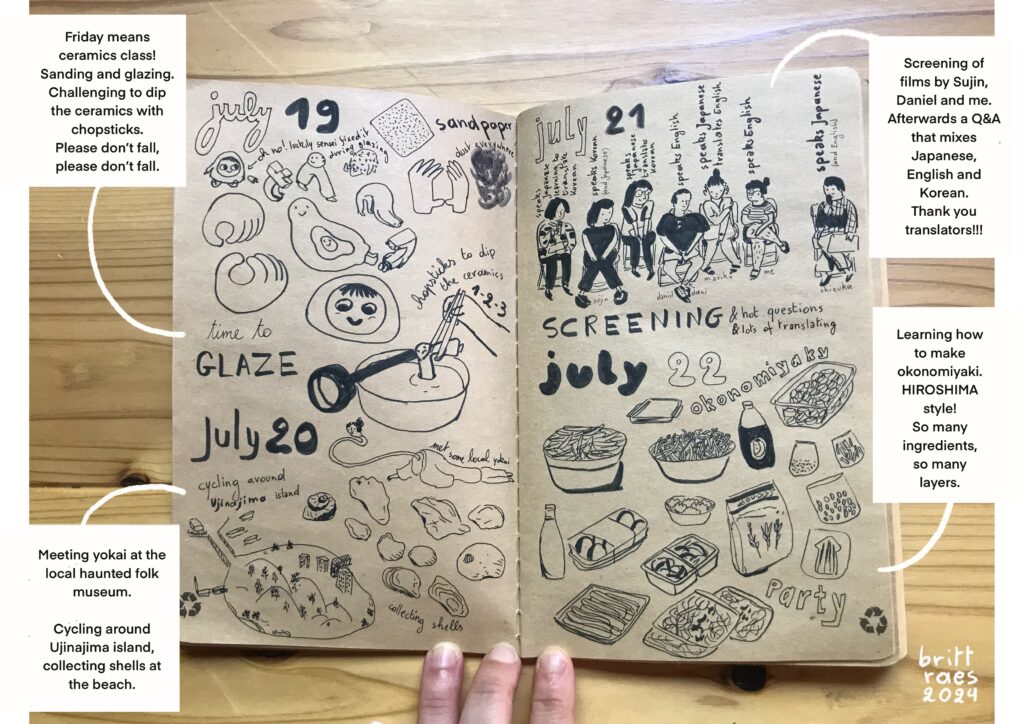 Friday means
ceramics class!
Sanding and glazing.
Challenging to dip
the ceramics with
chopsticks.
Please don't fall,
please don't fall.
july 19
sandpaper
dust everywhere
oh no! luckily sensei fixed it
during glazing
chopsticks to dip
the ceramics
1-2-3
time to
GLAZE
July 20
met some local yokai
cycling around
Ujinajima island
collecting shells
Meeting yokai at the
local haunted folk
museum.
Cycling around
Ujinajima island,
collecting shells at
the beach.
july 21
speaks
Japanese
learning to
translate
Korean
speaks Korean
(and Japanese)
speaks
Japanese
translates
Korean
speaks English
speaks Japanese
translates English
speaks English
speaks Japanese
(and English)
sujin
daniel
dani
marika
me
shizuka
SCREENING
& hot questions
& lots of translating
july 22
okonomiyaky
Party
Screening of
films by Sujin,
Daniel and me.
Afterwards a Q&A
that mixes
Japanese,
English and
Korean.
Thank you
translators!!!
Learning how
to make
okonomiyaki.
HIROSHIMA
style!
So many
ingredients,
so many
layers.
britt
raes
2024